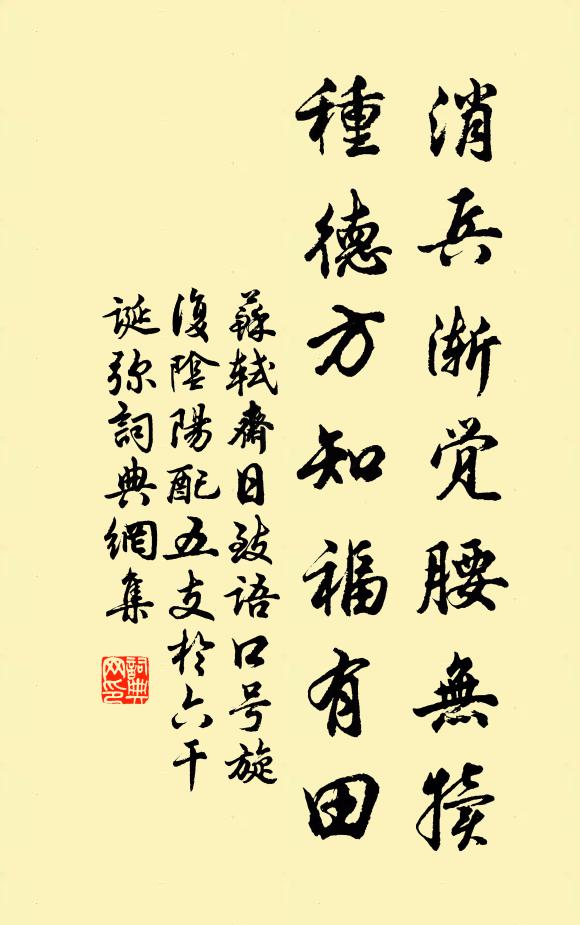 消兵漸覚腰無犢
種德方知福有田
蘇軾齋日致語口号旋
復陰陽配五支於六干
誕弥詞典網集
詞典网印